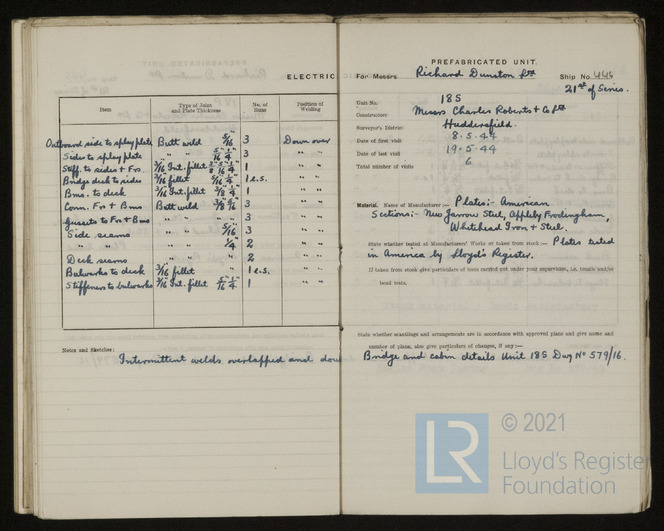 ELECTRIC
Item Type of Joint and Plate Thickness No. of Runs Position of Welding
Outboard side to splay plate Butt weld 5/16 3 Down over
Sides to splay plate " " 5/16" 1/4" 3 " "
Stiff. to sides + Frs. 3/16 Int. fillet 1 " "
Bridge deck to sides 3/16 fillet 1 e.s. " "
Bms. to deck 3/16 Int. fillet 3/8 1/4 1 " "
Conn. Frs + Bms Butt weld 3/8 5/16 3 " "
Gussets to Frs + Bms " " " 3 " "
Side seams " " 5/16 3 " "
" " " " 1/4 2 " "
Deck seams " " " 2 " "
Bulwarks to deck 3/16 fillet " 1 e.s. " "
Stiffeners to bulwarks 3/16 Int. fillet 5/16" 1/4" 1 " "
Notes and Sketches:
Intermittent welds overlapped and dou
PREFABRICATED UNIT
For Messrs Richard Dunston Ltd Ship No. 446
21st of Series.
Unit No. 185
Constructors Messrs Charles Roberts & Co Ltd
Surveyor's District Huddersfield.
Date of first visit 8.5.44
Date of last visit 19.5.44
Total number of visits 6
Material. Name of Manufacturer :- Plates :- American
Sections :- New Jarrow Steel, Appleby Frodingham,
Whitehead Iron + Steel.
State whether tested at Manufacturers' Works or taken from stock :- Plates tested
in America by Lloyd's Register.
If taken from stock give particulars of tests carried out under your supervision, i.e. tensile and/or
bend tests.
State whether scantlings and arrangements are in accordance with approved plans and give name and
number of plans, also give particulars of changes, if any :-
Bridge and cabin details Unit 185 Dwg No 579/16.
LR © 2021
Lloyd's Register
Foundation